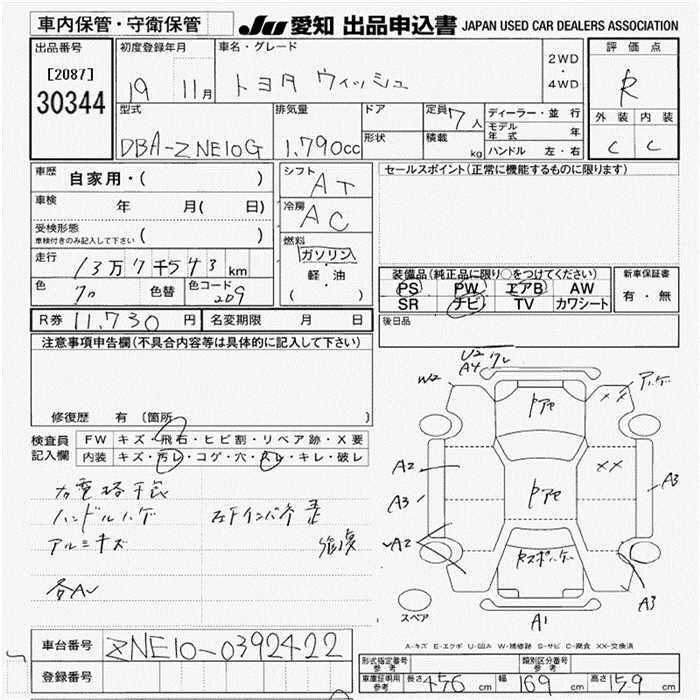 車内保管・守衛保管
JU 愛知 出品申込書 JAPAN USED CAR DEALERS ASSOCIATION
出品番号
[2087]
30344
初度登録年月
19 11月
車名・グレード
トヨタ ウィッシュ
2WD
・
4WD
評価点
R
外装 内装
C C
型式
DBA-ZNE10G
排気量
1,790cc
ドア
形状
定員 7人
積載 kg
ディーラー・並行
モデル年式 年
ハンドル 左・右
車歴
自家用・( )
車検
年 月( 日)
受検形態
車検付きのみ記入して下さい ( )
走行
13万7千543km
色
クロ
色替
色コード
209
シフト
AT
冷房
AC
燃料
ガソリン
軽・油
( )
セールスポイント(正常に機能するものに限ります)
装備品(純正品に限り○をつけてください)
PS PW エアB AW
SR ナビ TV カワシート
新車保証書
有・無
後日品
R券 11,730円
名変期限 月 日
注意事項申告欄(不具合内容等は具体的に記入して下さい)
修復歴 有 〔箇所
検査員
記入欄
FW キズ・飛石・ヒビ割・リペア跡・X要
内装 キズ・汚レ・コゲ・穴・スレ・キレ・破レ
ハンドルハゲ
アルミキズ
各AU
W2
U2
A4 ワレ
ハゲ
××
ドアセ
A2
A3
××
A3
ドアセ
A2
A3
A1
スペア
A-キズ E-エクボ U-凹み W-補修跡 S-サビ C-腐食 XX-交換済
車台番号
ZNE10-0392422
登録番号
形式指定番号
参考
類別区分番号
参考
車庫証明用
参考
長さ 456cm 幅 169cm 高さ 159cm